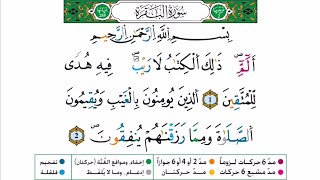 سُورَةُ الْبَقَرَةِ
بِسْمِ اللَّهِ الرَّحْمَٰنِ الرَّحِيمِ
الٓمٓ ذَٰلِكَ الْكِتَٰبُ لَا رَيْبَ ۛ فِيهِ ۛ هُدًى
لِّلْمُتَّقِينَ 1 الَّذِينَ يُؤْمِنُونَ بِالْغَيْبِ وَيُقِيمُونَ
الصَّلَوٰةَ وَمِمَّا رَزَقْنَٰهُمْ يُنفِقُونَ 2
مدّ 6 حركات لزوماً مدّ 2 أو 4 أو 6 جوازاً إخفاء، ومواقع الغُنَّة (حركتان) تفخيم
مدّ مشبع 6 حركات مدّ حركتان إدغام، وما لا يُلفَظ قلقلة